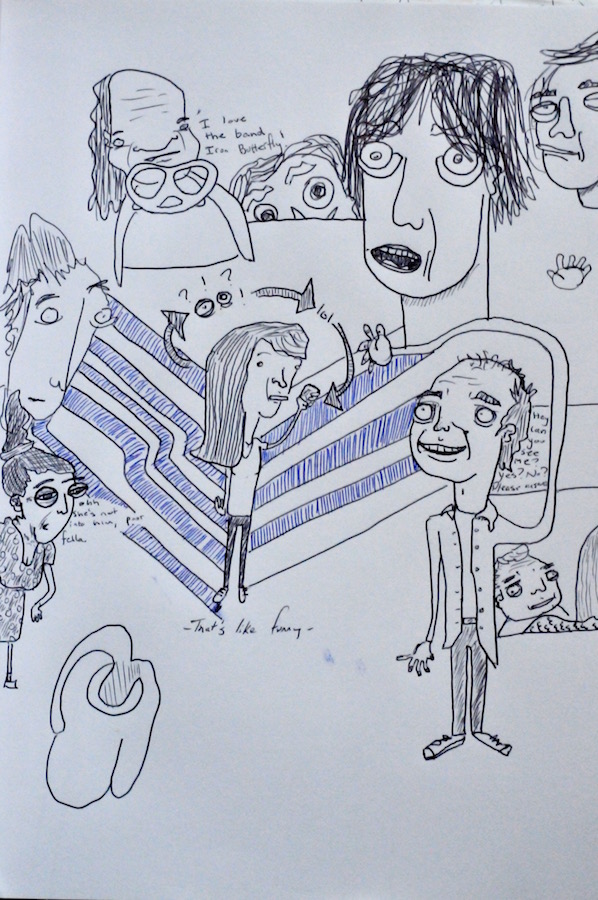 I love
the band
Iron Butterfly!
? ! ?
lol
Hey
can
you
see
me?
Yes? No?
Please
ohh
she's not
into him, poor
fella.
- That's like funny -